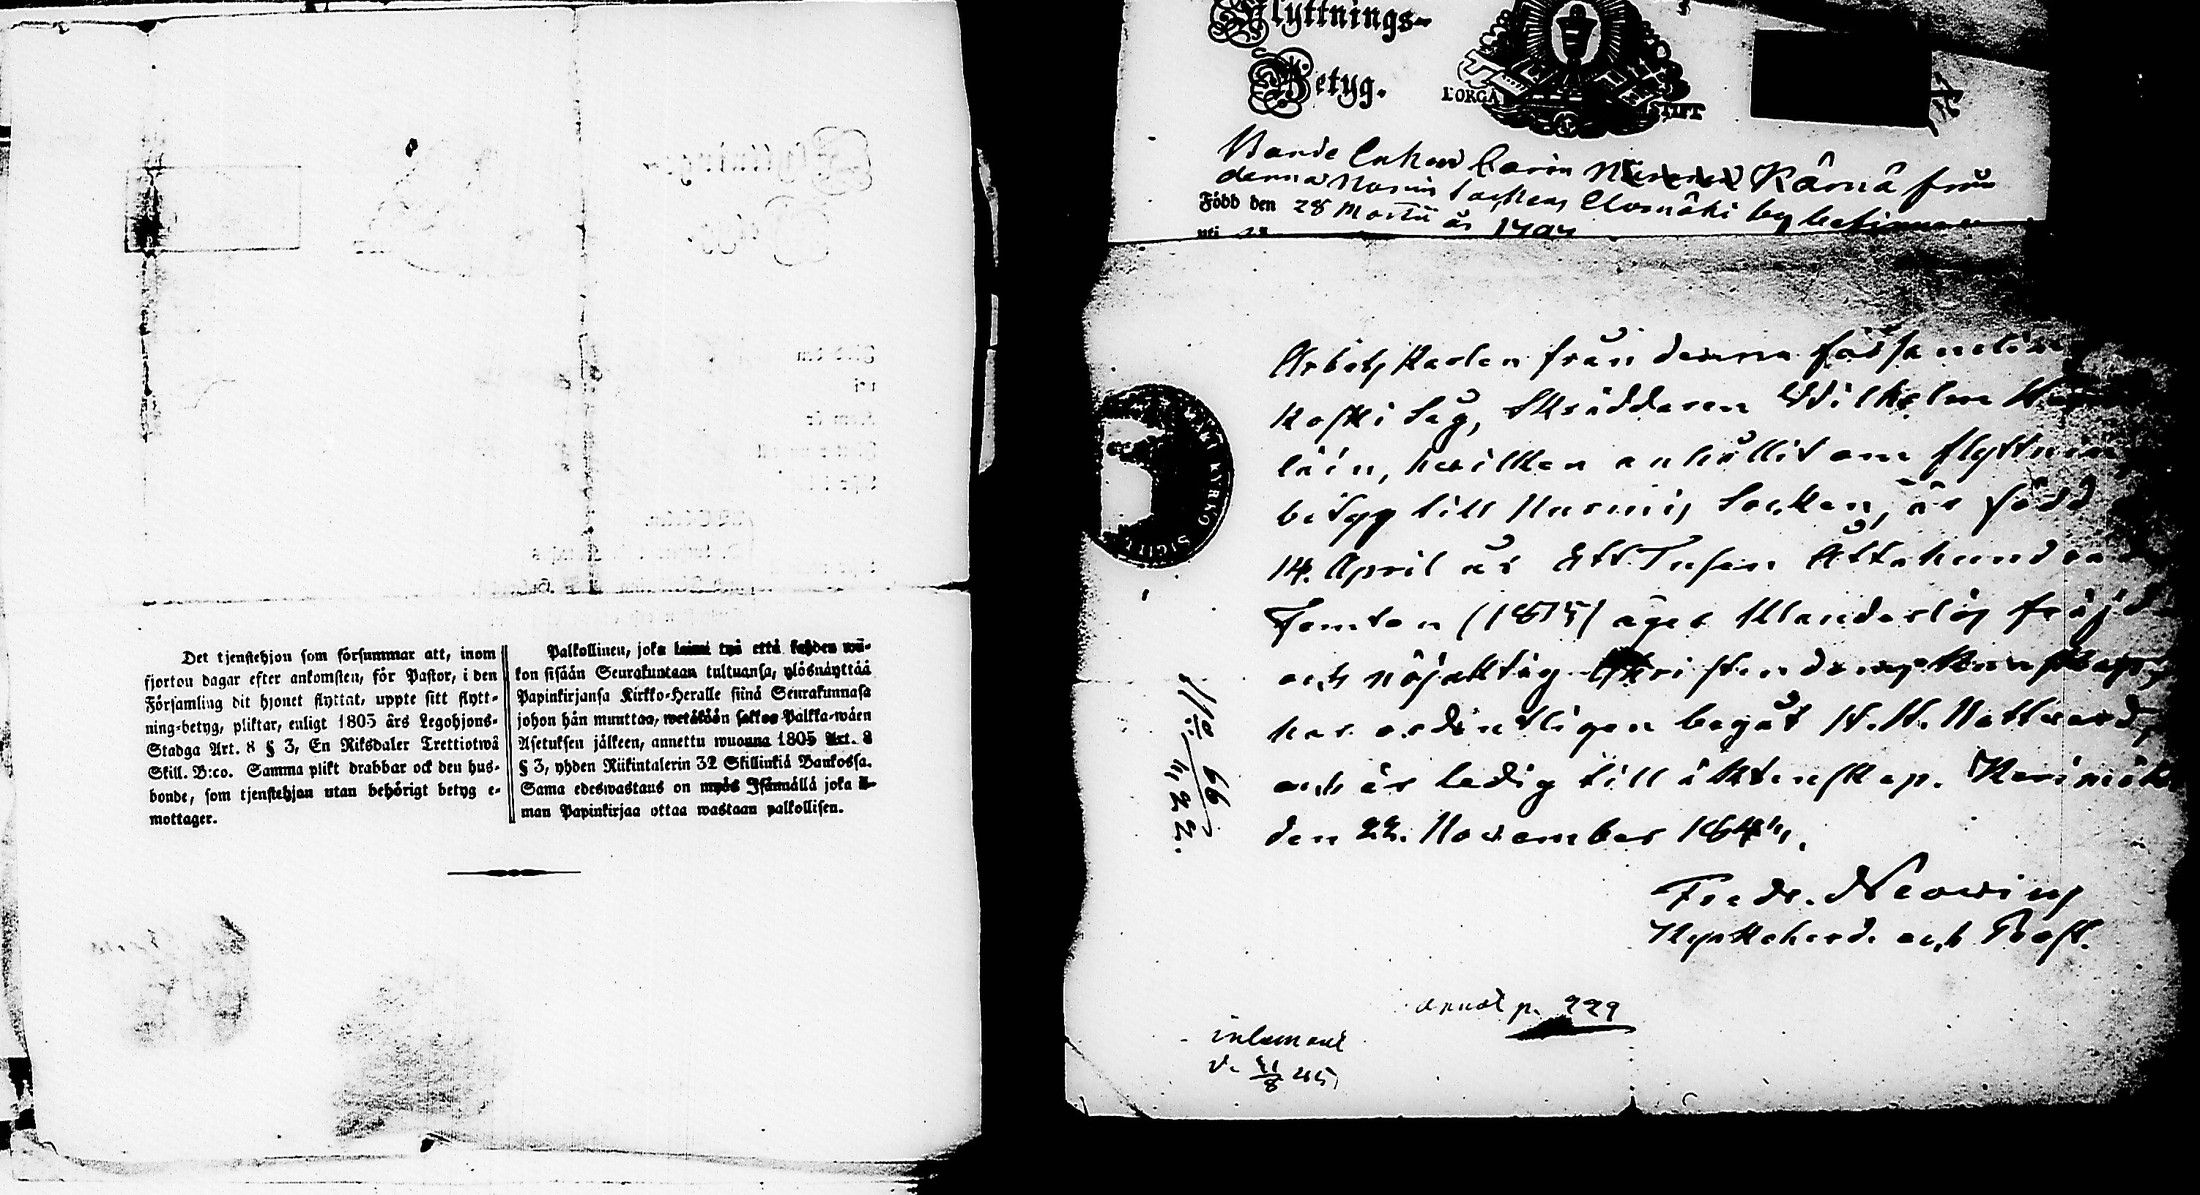 Det tjenstehjon som försummar att, inom
fjorton dagar efter ankomsten, för Pastor, i den
Församling dit hjonet flyttat, uppte sitt flytt-
ning-betyg, pliktar, enligt 1805 års Legohjons-
Stadga Art. 8 § 3, En Riksdaler Trettiotwå
Skill. B:co. Samma plikt drabbar ock den hus-
bonde, som tjenstehjon utan behörigt betyg e-
mottager.
Palkollinen, joka laimi lyö että kahden wii-
kon sisään Seurakuntaan tultuansa, ylösnäyttää
Papinkirjansa Kirkko-Heralle siinä Seurakunnasa
johon hän munttaa, wetäköön sakkoa Palkka-wäen
Asetuksen jälkeen, annettu wuonna 1805 Art. 8
§ 3, yhden Riikintalerin 32 Skillinkiä Bankossa.
Sama edeswastaus on myös Isännällä joka il-
man Papinkirjaa ottaa wastaan palkollisen.
Flyttnings-
Betyg.
Bonde Enkan Carin Kärnä från
denna Nurmis Sochen
Född den 28 Martii år
Arbetskarlen från denna församlings
koski Såg, Skräddaren Wilhelm
läin, hwilken anhållit om flyttnings
betyg till Nurmis Socken, är född
14. April år Ett Tusen Åttahundra
Femton (1815) äger klanderlös frejd
och nöjaktig Christendoms kunskap,
har ordentligen begått H. H. Nattvard,
och är ledig till äktenskap. Kerimäki
den 22. November 1844.
Fredr. Neovius
Kyrkoherde och Prost.
N:o 66
p. 229
inlemnat
d. 11/8 45